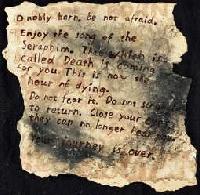 O nobly born, be not afraid.
Enjoy the song of the
Seraphim. That which is
called Death is coming
for you. This is now the
hour of dying.
Do not fear it. Do not
to return. Close your
they can no longer
journey is over.